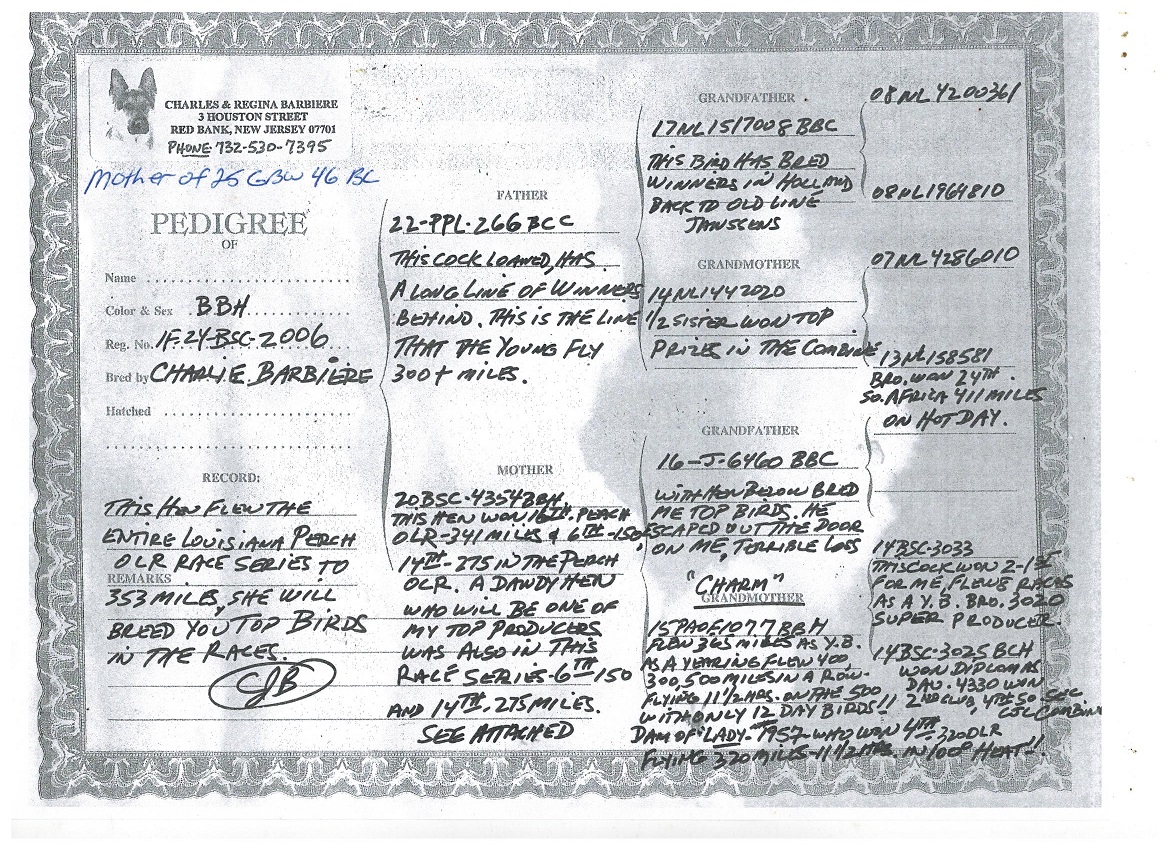 CHARLES & REGINA BARBIERE
3 HOUSTON STREET
RED BANK, NEW JERSEY 07701
PHONE 732-530-7395
Mother of 25 GBW 46 BC
PEDIGREE
OF
Name
Color & Sex BBH
Reg. No. IF-24-BSC-2006
Bred by CHARLIE BARBIERE
Hatched
RECORD:
THIS HEN FLEW THE
ENTIRE LOUISIANA PERCH
OLR RACE SERIES TO
REMARKS
353 MILES, SHE WILL
BREED YOU TOP BIRDS
IN THE RACES.
CJB
FATHER
22-PPL-266 BCC
THIS COCK LOANED, HAS
A LONG LINE OF WINNERS
BEHIND. THIS IS THE LINE
THAT THE YOUNG FLY
300+ MILES.
MOTHER
20BSC-4354 BBH
THIS HEN WON 16TH. PEACH
OLR-341 MILES & 6TH-150,
14TH-275 IN THE PERCH
OLR. A DANDY HEN
WHO WILL BE ONE OF
MY TOP PRODUCERS
WAS ALSO IN THIS
RACE SERIES-6TH-150
AND 14TH, 275 MILES.
SEE ATTACHED
GRANDFATHER
17NL1517008 BBC
THIS BIRD HAS BRED
WINNERS IN HOLLAND
BACK TO OLD LINE
JANSSENS
GRANDMOTHER
14NL1442020
1/2 SISTER WON TOP
PRIZES IN THE COMBINE
GRANDFATHER
16-J-6460 BBC
WITH HEN BELOW BRED
ME TOP BIRDS. HE
ESCAPED OUT THE DOOR
ON ME, TERRIBLE LOSS
"CHARM"
GRANDMOTHER
15PAOF1077 BBH
FLEW 365 MILES AS Y.B.
AS A YEARING FLEW 400,
300,500 MILES IN A ROW
FLYING 11 1/2 HRS. ON THE 500
WITH ONLY 12 DAY BIRDS!!
DAM OF "LADY-1957-WHO WON 4TH 320 OLR
FLYING 320 MILES-11 1/2 HRS. IN 100° HEAT!!
08NL4200361
08NL1964810
07NL4286010
13NL158581
BRO. WON 24TH
SO. AFRICA 411 MILES
ON HOT DAY.
14BSC-3033
THIS COCK WON 2-1ST
FOR ME, FLEW 8 RACES
AS A Y.B. BRO. 3020
SUPER PRODUCER.
14BSC-3025 BCH
WON DIPLOMAS
DAU. 4330 WON
2ND CLUB, 4TH SO. SEC
CJC COMBINE